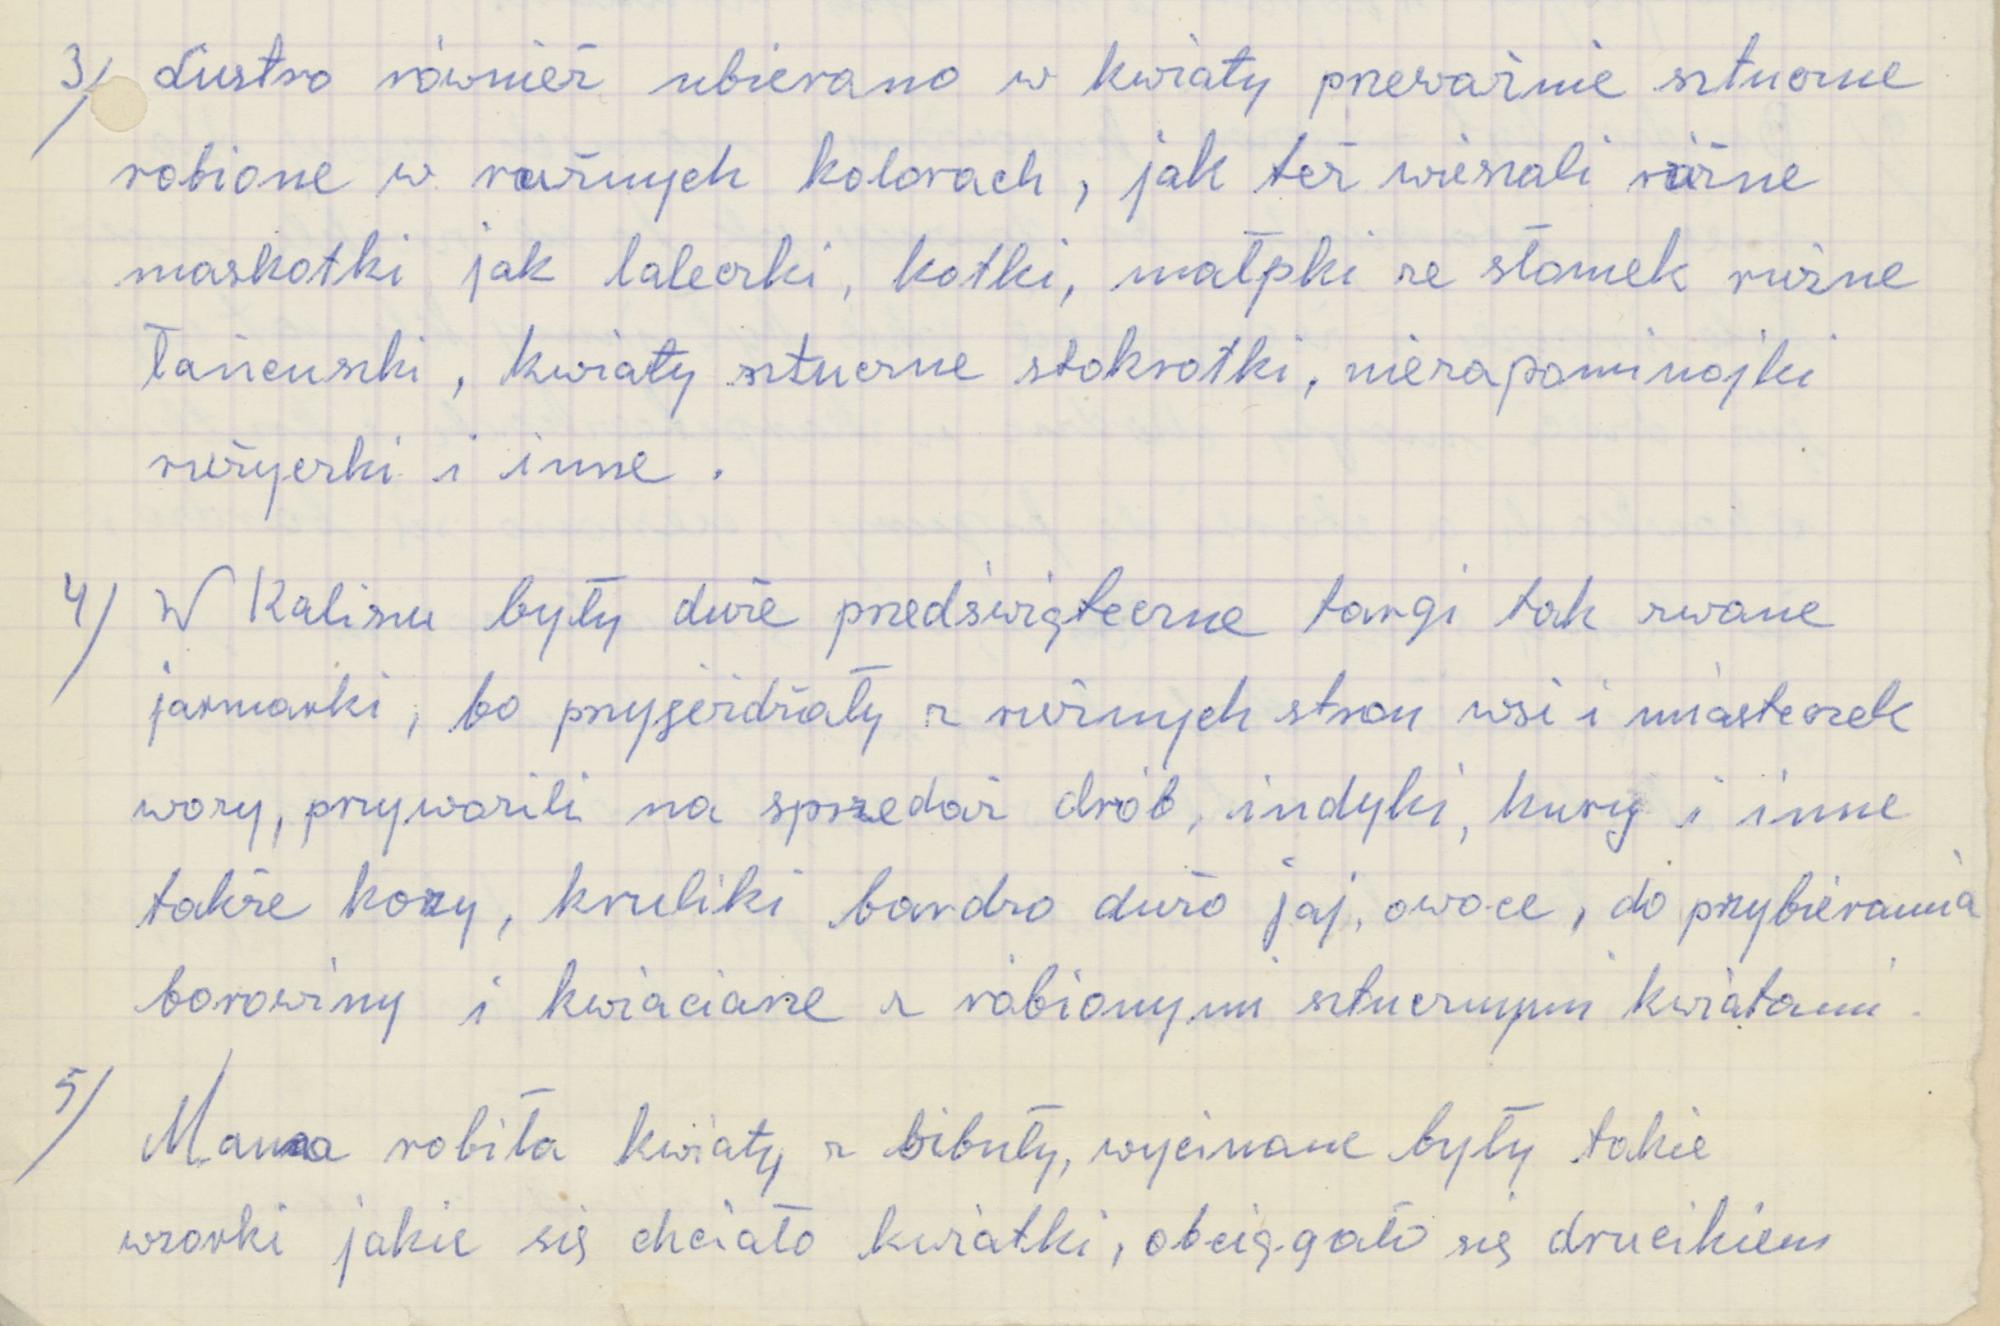 3/ Lustro również ubierano w kwiaty przeważnie sztuczne
robione w rużnych kolorach, jak też wieszali różne
maskotki jak laleczki, kotki, małpki ze słomek rużne
łańcuszki, kwiaty sztuczne stokrotki, niezapominojki
rużyczki i inne.
4/ W Kaliszu były duże przedświąteczne targi tak zwane
jarmarki, bo przyjeżdżały z rużnych stron wsi i miasteczek
wozy, przywozili na sprzedaż drób, indyki, kury i inne
także kozy, kruliki bardzo dużo jaj, owoce, do przybierania
borowiny i kwiaciarze z robionymi sztucznymi kwiatami.
5/ Mama robiła kwiaty z bibuły, wycinane były takie
wzorki jakie się chciało kwiatki, obciągało się drucikiem